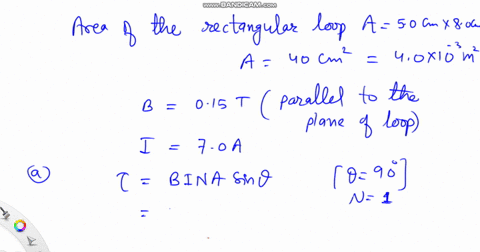 WWW.BANDICAM.COM
Area of the rectangular loop A = 5.0 cm x 8.0cm
A = 40 cm² = 4.0x10⁻³ m²
B = 0.15 T (parallel to the
plane of loop)
I = 7.0 A
(a) τ = BINA Sinθ [θ = 90°]
N = 1
=